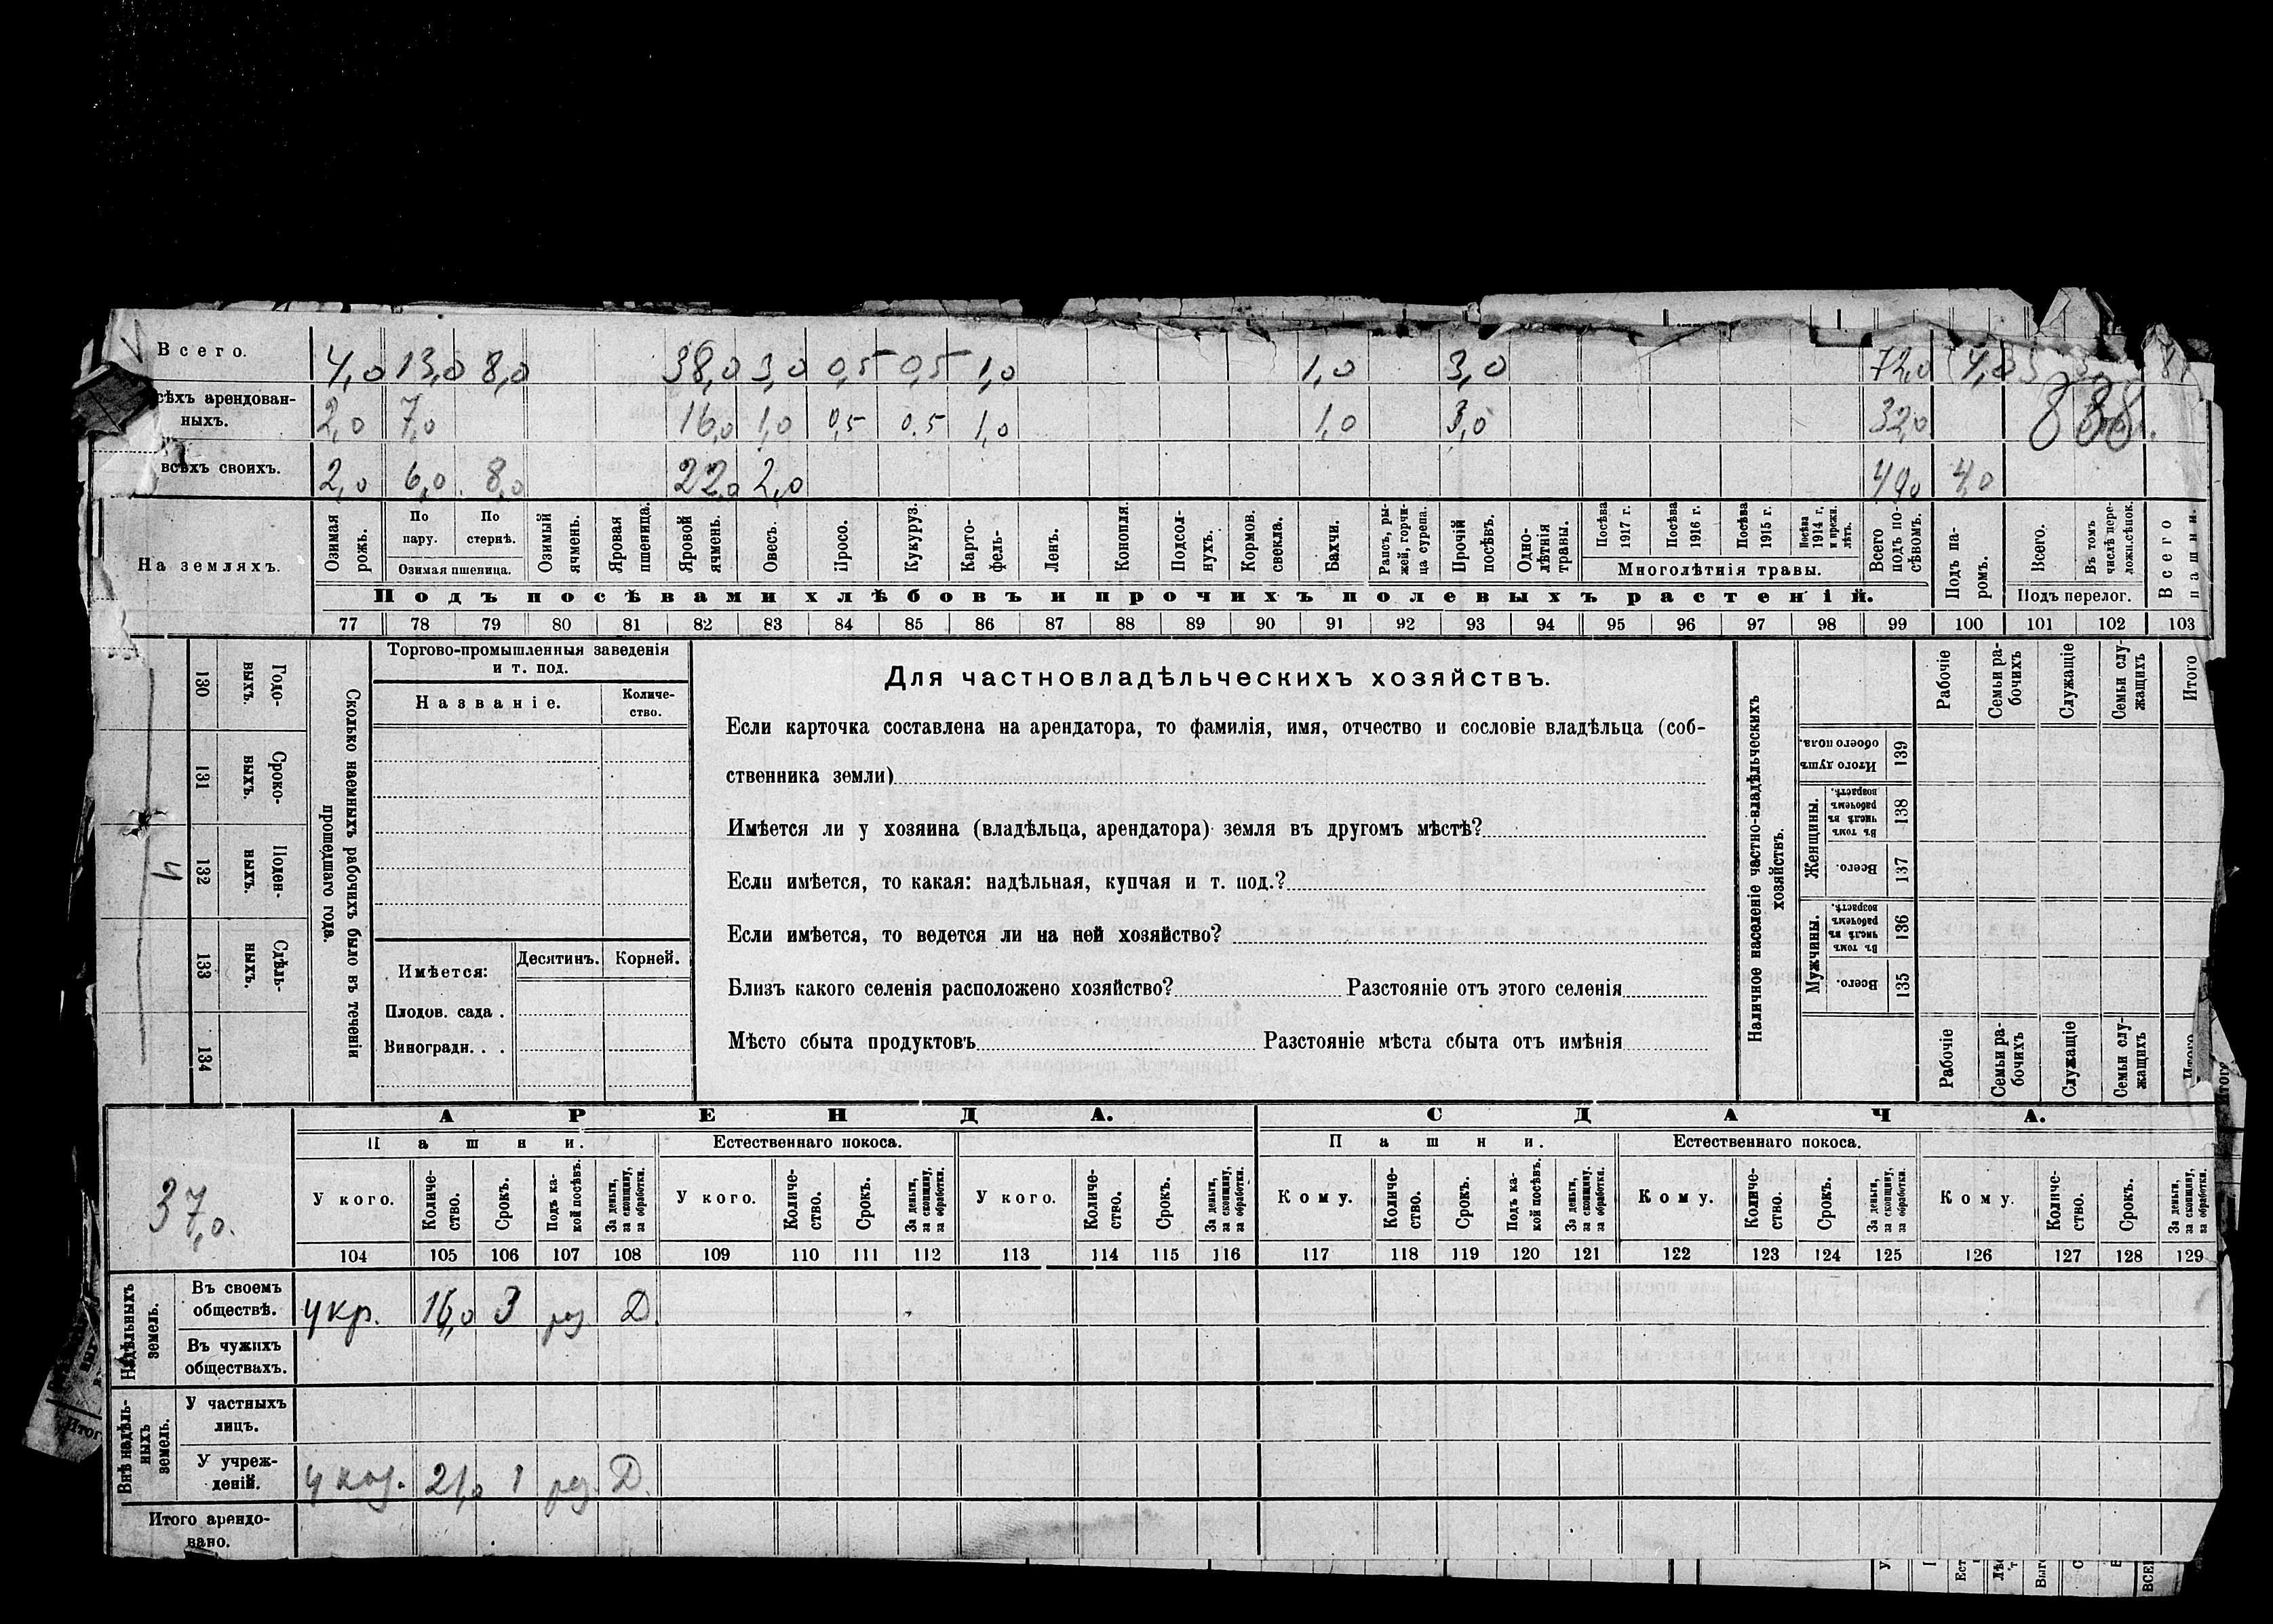 Всего. 4,0 13,0 8,0 38,0 3,0 0,5 0,5 1,0 1,0 3,0 72,0 4,0
сѣхъ арендован-
ныхъ. 2,0 7,0 16,0 1,0 0,5 0.5 1,0 1,0 3,0 32,0 888.
всѣхъ своихъ. 2,0 6,0 8,0 22,0 2,0 40,0 4,0
На земляхъ.
Озимая рожь.
По пару.
По стернѣ.
Озимая пшеница.
Озимый ячмень.
Яровая пшеница.
Яровой ячмень.
Овесъ.
Просо.
Кукуруз.
Карто-
фель.
Ленъ.
Конопля.
Подсол-
нухъ.
Кормов. свекла.
Бахчи.
Рапсъ, ры-
жей, горчи-
ца сурепа.
Прочій посѣвъ.
Одно-
лѣтнія травы.
Посѣва 1917 г.
Посѣва 1916 г.
Посѣва 1915 г.
Посѣва 1914 г. и прежн. лѣтъ.
Многолѣтнія травы.
Всего подъ по-
сѣвомъ.
Подъ па-
ромъ.
Всего.
Въ томъ числѣ пере-
ложн.сѣнок.
Подъ перелог.
Всего пашни.
Подъ посѣвами хлѣбовъ и прочихъ полевыхъ растеній.
77 78 79 80 81 82 83 84 85 86 87 88 89 90 91 92 93 94 95 96 97 98 99 100 101 102 103
130 Годо-
выхъ.
131 Сроко-
выхъ.
132 Поден-
ныхъ.
133 Сдѣль-
ныхъ.
134
Сколько наемныхъ рабочихъ было въ теченіи
прошедшаго года.
Торгово-промышленныя заведенія
и т. под.
Названіе.
Количе-
ство.
Имѣется:
Десятинъ. Корней.
Плодов. сада .
Виноградн. . .
Для частновладѣльческихъ хозяйствъ.
Если карточка составлена на арендатора, то фамилія, имя, отчество и сословіе владѣльца (соб-
ственника земли)
Имѣется ли у хозяина (владѣльца, арендатора) земля въ другомъ мѣстѣ?
Если имѣется, то какая: надѣльная, купчая и т. под.?
Если имѣется, то ведется ли на ней хозяйство?
Близъ какого селенія расположено хозяйство? Разстояніе отъ этого селенія
Мѣсто сбыта продуктовъ Разстояніе мѣста сбыта отъ имѣнія
Наличное населеніе частно-владѣльческихъ
хозяйствъ.
Рабочіе
Семьи ра-
бочихъ
Служащіе
Семьи слу-
жащихъ
Итого
Итого душъ обоего пола. 139
Женщины.
Въ томъ числѣ въ рабочемъ возрастѣ. 138
Всего. 137
Мужчины.
Въ томъ числѣ въ рабочемъ возрастѣ. 136
Всего. 135
Рабочіе
Семьи ра-
бочихъ
Служащіе
Семьи слу-
жащихъ
Итого
АРЕНДА. СДАЧА.
Пашни. Естественнаго покоса. Пашни. Естественнаго покоса.
37,0.
У кого.
Количе-
ство.
Срокъ.
Подъ ка-
кой посѣвъ.
За деньги, за скопщину, за обработки.
У кого.
Количе-
ство.
Срокъ.
За деньги, за скопщину, за обработки.
У кого.
Количе-
ство.
Срокъ.
За деньги, за скопщину, за обработки.
Кому.
Количе-
ство.
Срокъ.
Подъ ка-
кой посѣвъ.
За деньги, за скопщину, за обработки.
Кому.
Количе-
ство.
Срокъ.
За деньги, за скопщину, за обработки.
Кому.
Количе-
ство.
Срокъ.
За деньги, за скопщину, за обработки.
104 105 106 107 108 109 110 111 112 113 114 115 116 117 118 119 120 121 122 123 124 125 126 127 128 129
Надѣльныхъ земель.
Въ своемъ
обществѣ. у кр. 16,0 3 Д.
Въ чужихъ
обществахъ.
Внѣ надѣль-
ныхъ земель.
У частныхъ
лицъ.
У учреж-
деній. 21,0 1 Д.
Итого арендо-
вано.